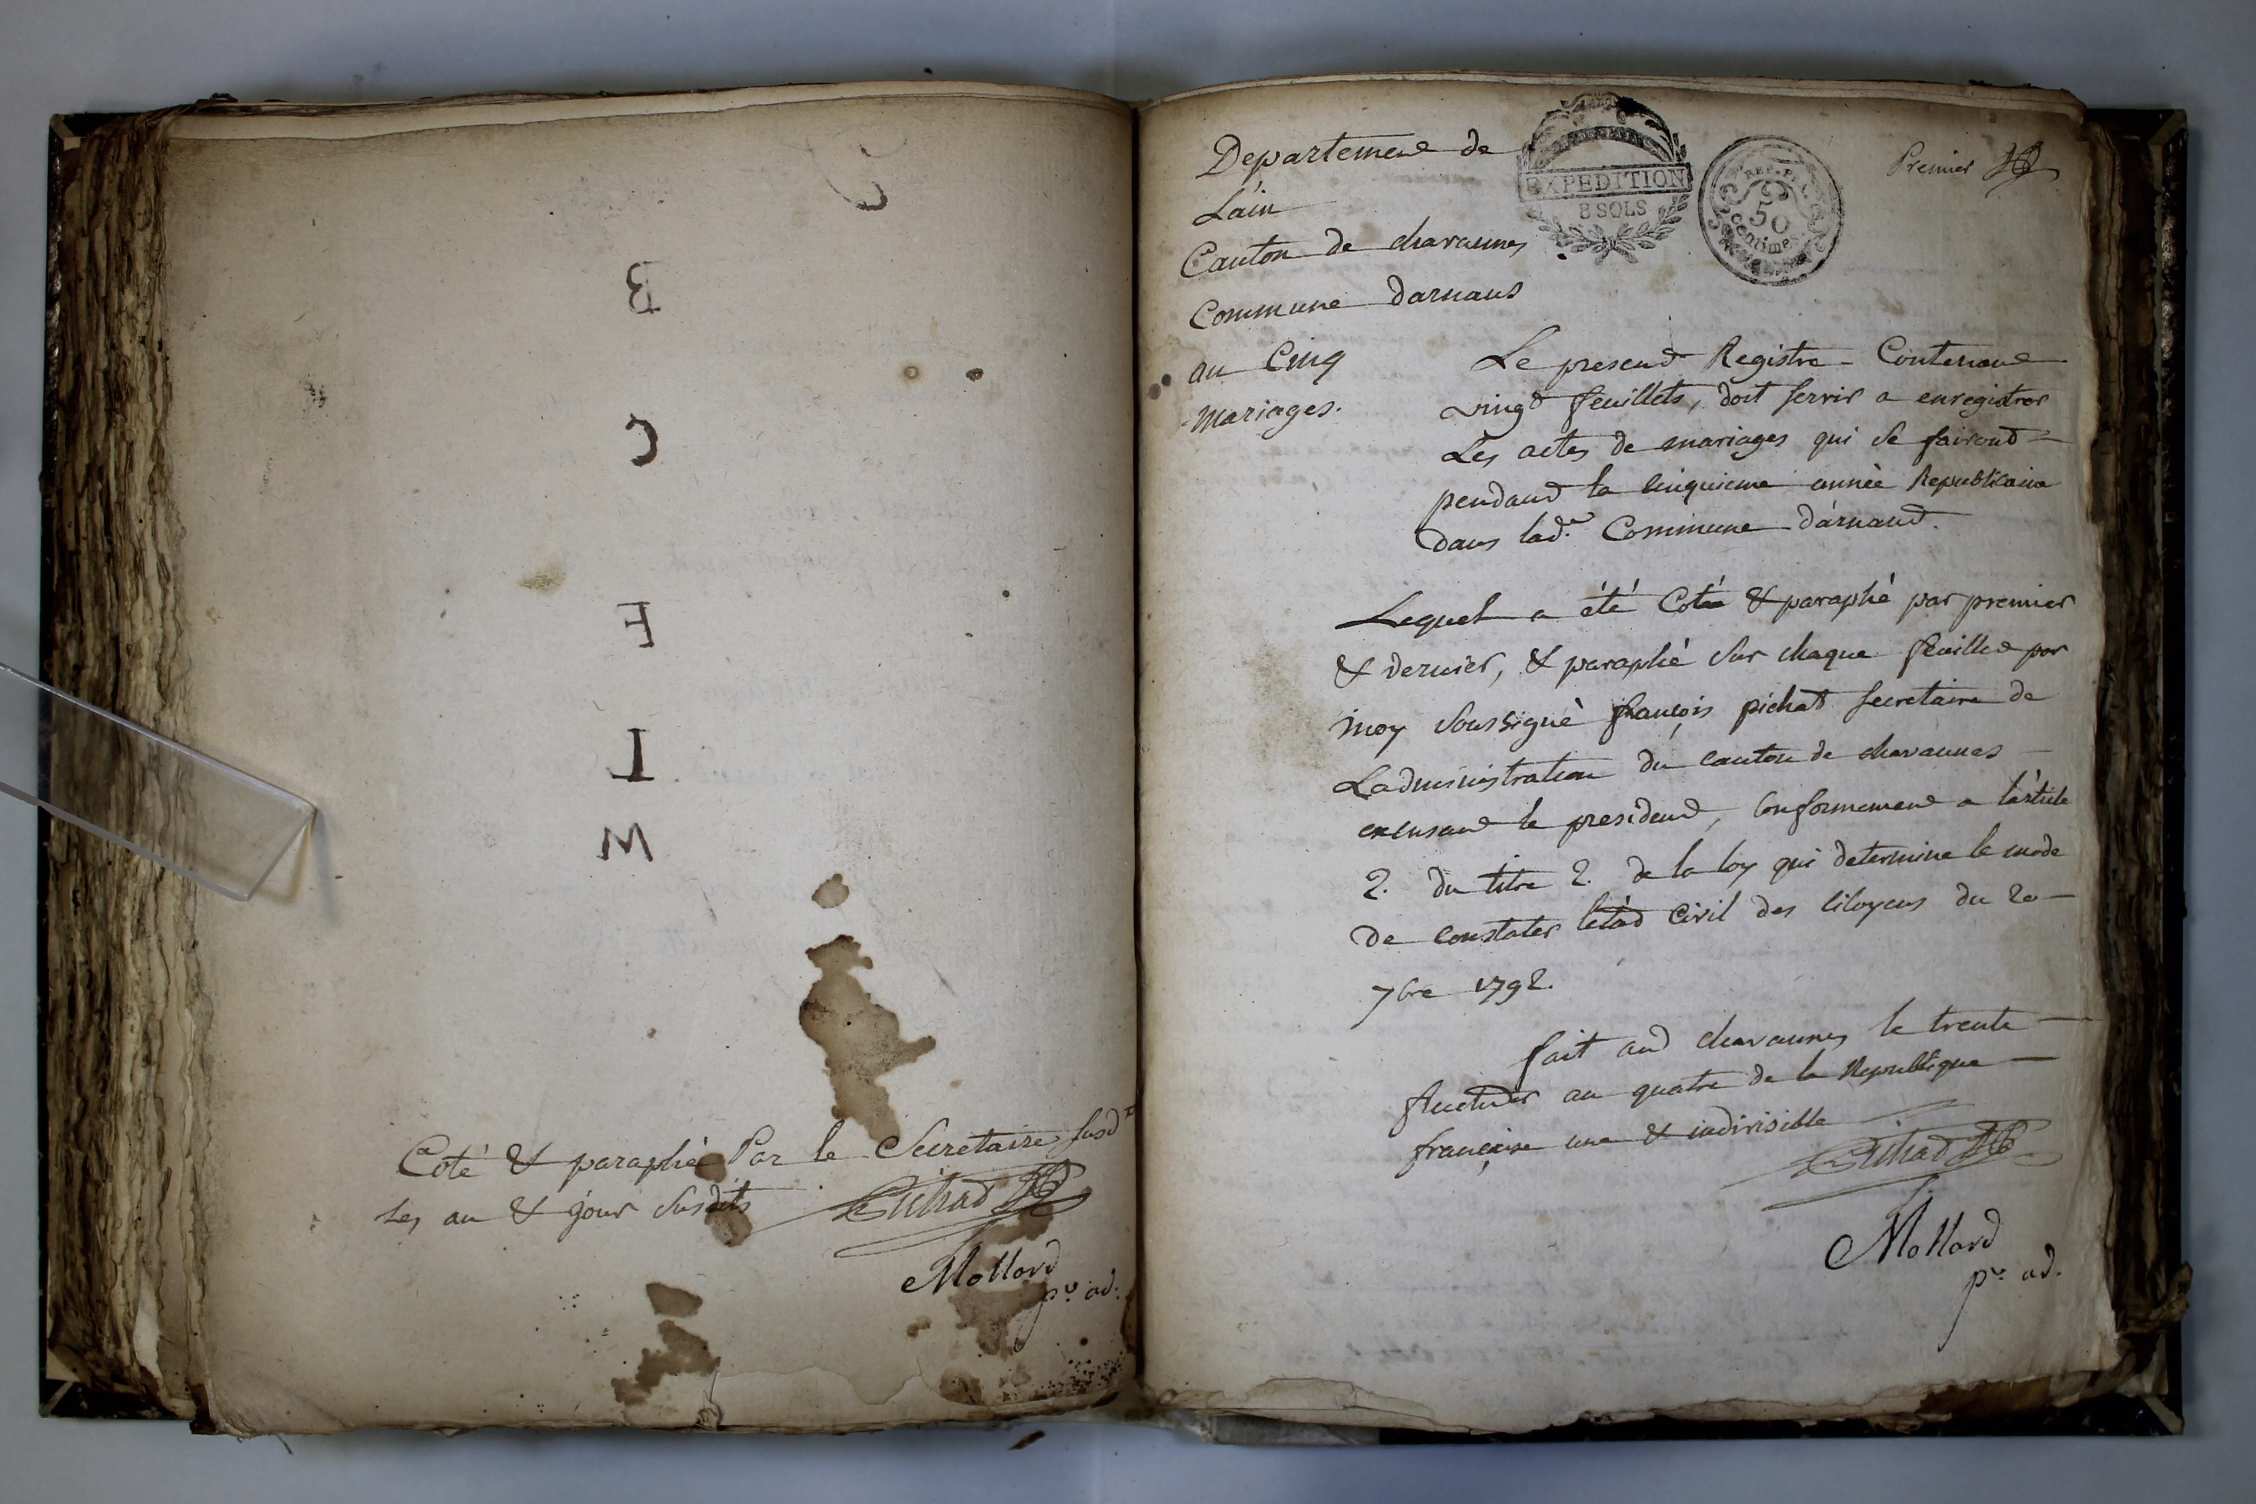 B
C
F
I
M
Coté & paraphé Par le Secretaire susd.t
les an & jour susdits Pichad
Mollard
p.r ad.
Departement de
L'ain
Canton de chavannes
Commune darnans
an Cinq
Mariages.
EXPEDITION
8 SOLS
REP. FRA.
50
Centimes
Premier
Le present Registre Contenant
vingt feuillets, doit servir a enregistrer
Les actes de mariages qui se fairont
pendant la cinquieme année Republicaine
dans lad.e Commune d'arnand.
Lequel a été Coté & paraphé par premier
& dernier, & paraphé sur chaque feuille par
moy soussigné françois pichat secretaire de
Ladministration du canton de chavannes
excusant le president, Conformement a l'article
2. du titre 2. de la loy qui determine le mode
de constater létad Civil des Citoyens du 20
7bre 1792.
fait aud chavannes le trente
fructidor an quatre de la Republique
française une & indivisible
Pichad
Mollard
p.r ad.